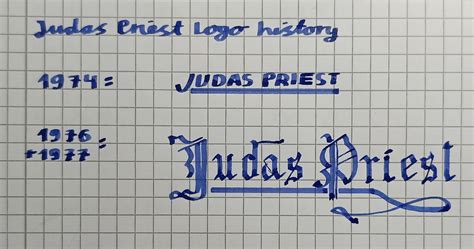 Judas Priest Logo history
1974 = JUDAS PRIEST
1976
+1977 = Judas Priest